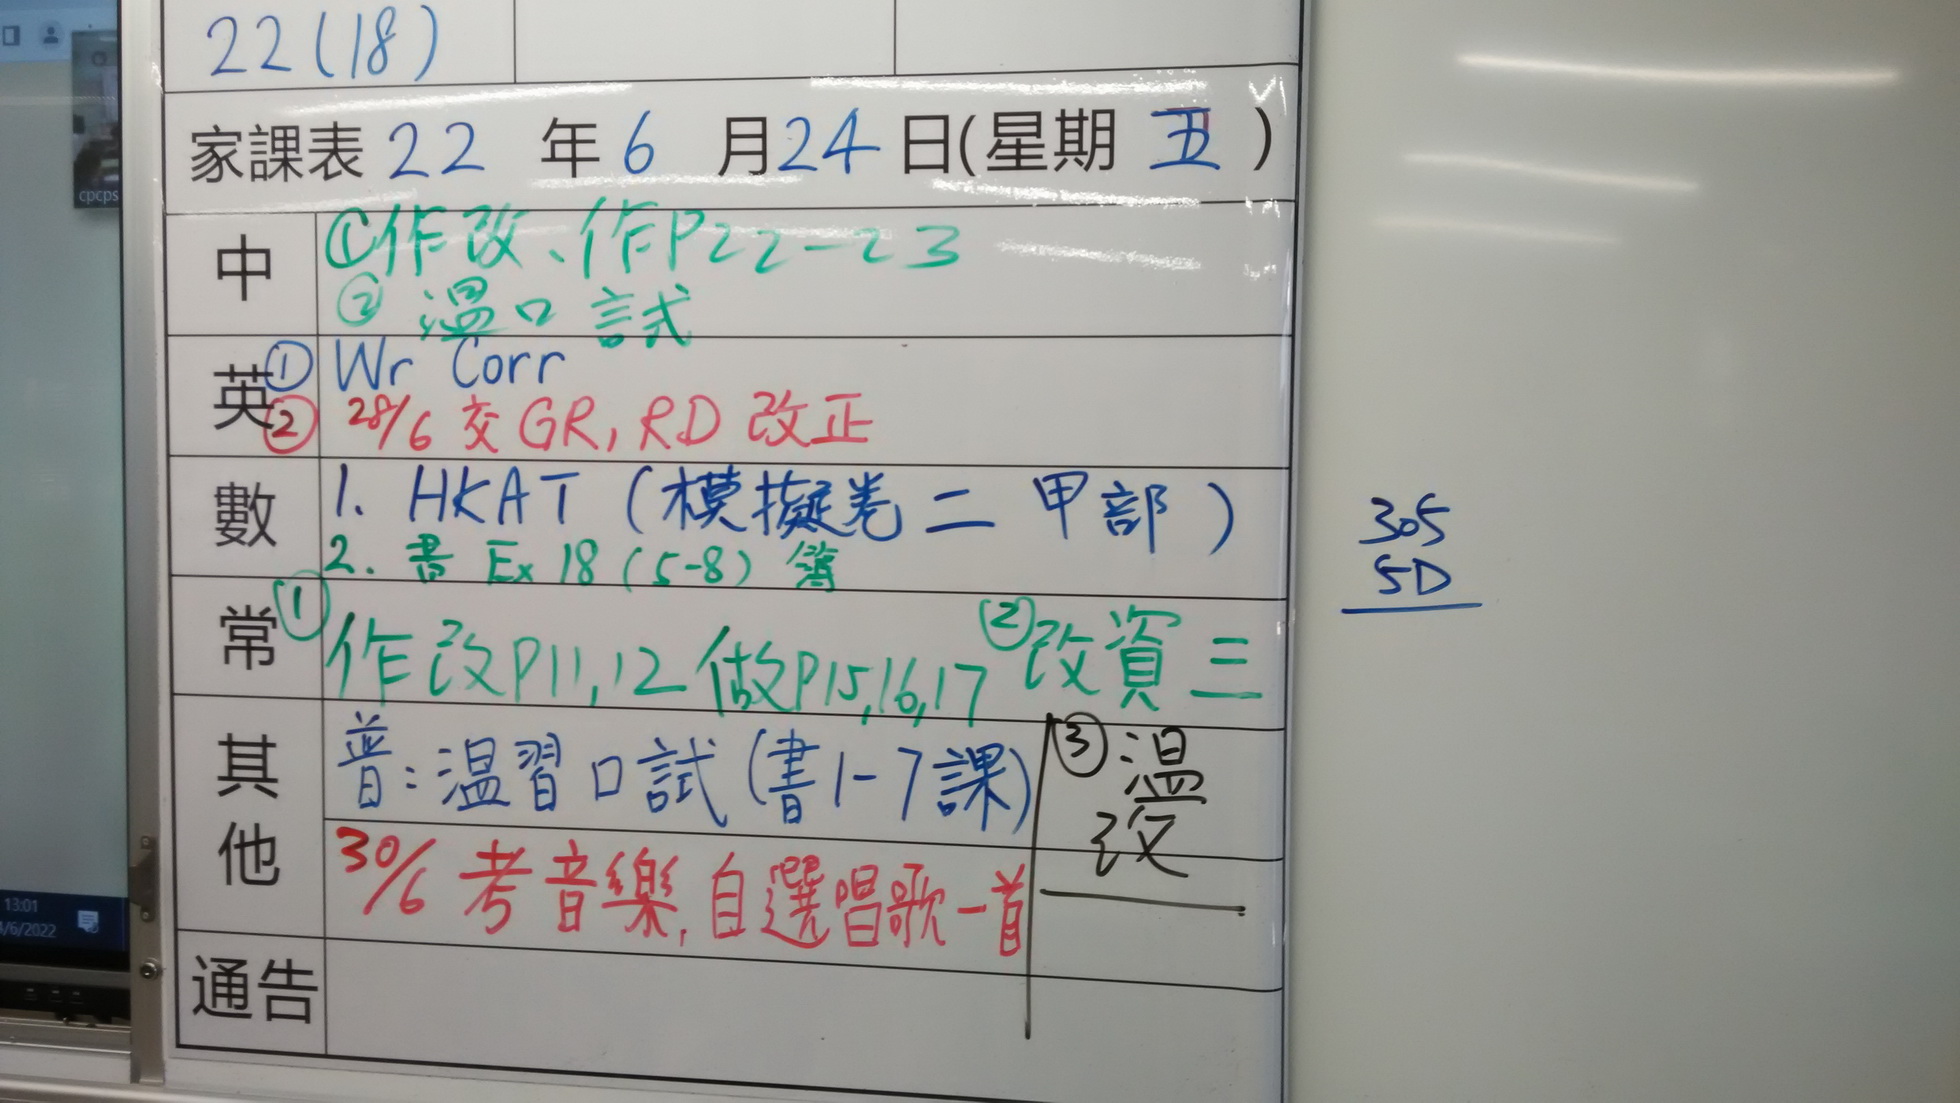 22(18)
家課表 22 年 6 月 24 日(星期 五)
中
①作改、作P22-23
② 溫口試
英
① Wr Corr
② 28/6 交 GR, RD 改正
數
1. HKAT (模擬卷二 甲部)
2. 書 Ex 18 (5-8) 簿
常
① 作改P11,12 做P15,16,17 ②改資三
③溫
改
其他
普:溫習口試(書1-7課)
30/6 考音樂,自選唱歌一首
通告
305
5D
cpcps
13:01
/6/2022